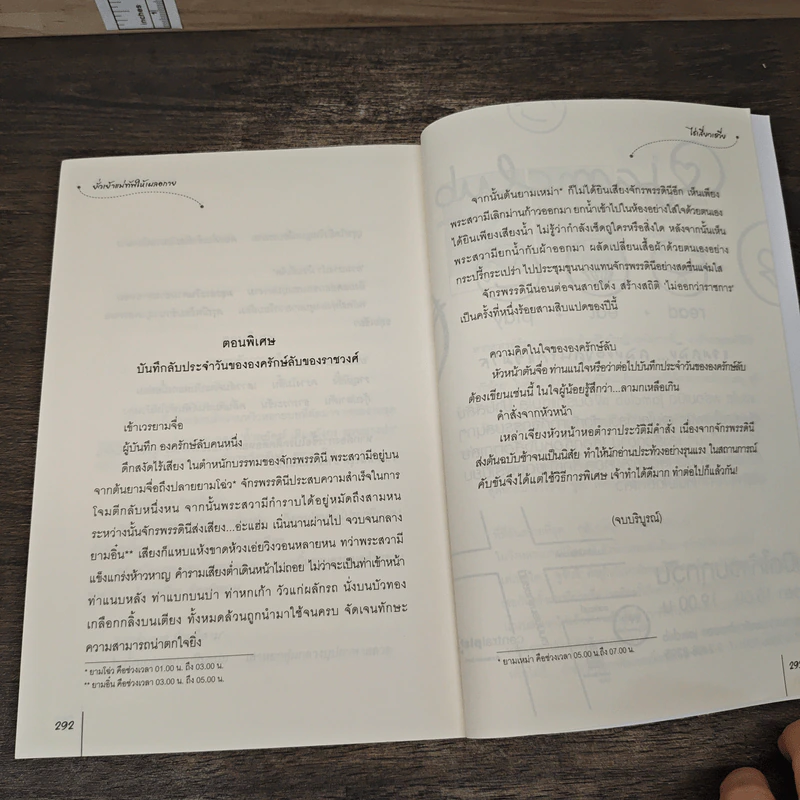 inches
ยั่วเย้าแม่ทัพให้เผลอกาย
ตอนพิเศษ
บันทึกลับประจำวันขององครักษ์ลับของราชวงศ์
เข้าเวรยามจื่อ
ผู้บันทึก องครักษ์ลับคนหนึ่ง
ดึกสงัดไร้เสียง ในตำหนักบรรทมของจักรพรรดินี พระสวามีอยู่บน
จากต้นยามจื่อถึงปลายยามโฉ่ว* จักรพรรดินีประสบความสำเร็จในการ
โจมตีกลับหนึ่งหน จากนั้นพระสวามีกำราบได้อยู่หมัดถึงสามหน
ระหว่างนั้นจักรพรรดินีส่งเสียง...อะแฮ่ม เนิ่นนานผ่านไป จวบจนกลาง
ยามอิ๋น** เสียงก็แหบแห้งขาดห้วงเอ่ยวิงวอนหลายหน ทว่าพระสวามี
แข็งแกร่งห้าวหาญ คำรามเสียงต่ำเดินหน้าไม่ถอย ไม่ว่าจะเป็นท่าเข้าหน้า
ท่าแนบหลัง ท่าแบกบนบ่า ท่าหกเก้า วัวแก่ผลักรถ นั่งบนบัวทอง
เกลือกกลิ้งบนเตียง ทั้งหมดล้วนถูกนำมาใช้จนครบ จัดเจนทักษะ
ความสามารถน่าตกใจยิ่ง
* ยามโฉ่ว คือช่วงเวลา 01.00 น. ถึง 03.00 น.
** ยามอิ๋น คือช่วงเวลา 03.00 น. ถึง 05.00 น.
292
จากนั้นต้นยามเหม่า* ก็ไม่ได้ยินเสียงจักรพรรดินีอีก เห็นเพียง
พระสวามีเลิกม่านก้าวออกมา ยกน้ำเข้าไปในห้องอย่างใส่ใจด้วยตนเอง
ได้ยินเพียงเสียงน้ำ ไม่รู้ว่ากำลังเช็ดถูใครหรือสิ่งใด หลังจากนั้นเห็น
พระสวามียกน้ำกับผ้าออกมา ผลัดเปลี่ยนเสื้อผ้าด้วยตนเองอย่าง
กระปรี้กระเปร่า ไปประชุมขุนนางแทนจักรพรรดินีอย่างสดชื่นแจ่มใส
จักรพรรดินีนอนต่อจนสายโด่ง สร้างสถิติ 'ไม่ออกว่าราชการ'
เป็นครั้งที่หนึ่งร้อยสามสิบแปดของปีนี้
ความคิดในใจขององครักษ์ลับ
หัวหน้าต้นจื่อ ท่านแน่ใจหรือว่าต่อไปบันทึกประจำวันขององครักษ์ลับ
ต้องเขียนเช่นนี้ ในใจผู้น้อยรู้สึกว่า...ลามกเหลือเกิน
คำสั่งจากหัวหน้า
เหล่าเจียงหัวหน้าหอตำราประวัติมีคำสั่ง เนื่องจากจักรพรรดินี
ส่งต้นฉบับช้าจนเป็นนิสัย ทำให้นักอ่านประท้วงอย่างรุนแรง ในสถานการณ์
คับขันจึงได้แต่ใช้วิธีการพิเศษ เจ้าทำได้ดีมาก ทำต่อไปก็แล้วกัน!
(จบบริบูรณ์)
* ยามเหม่า คือช่วงเวลา 05.00 น. ถึง 07.00 น.